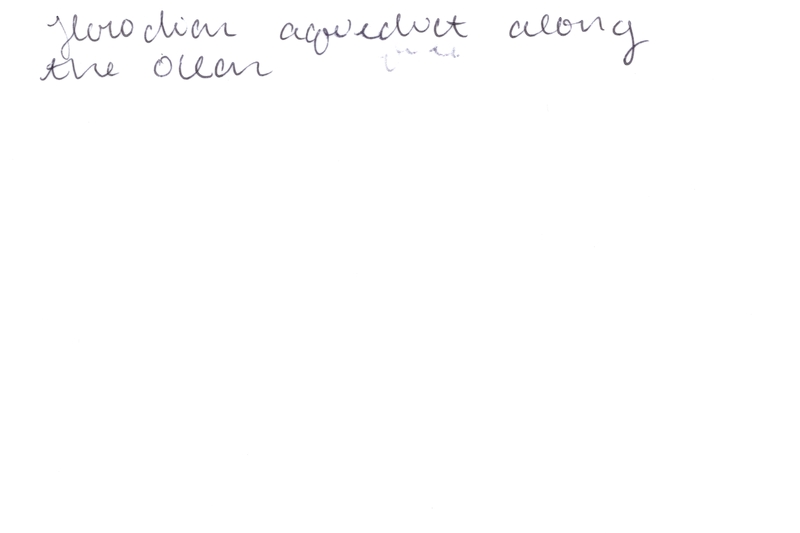 Herodian aqueduct along
the Ocean